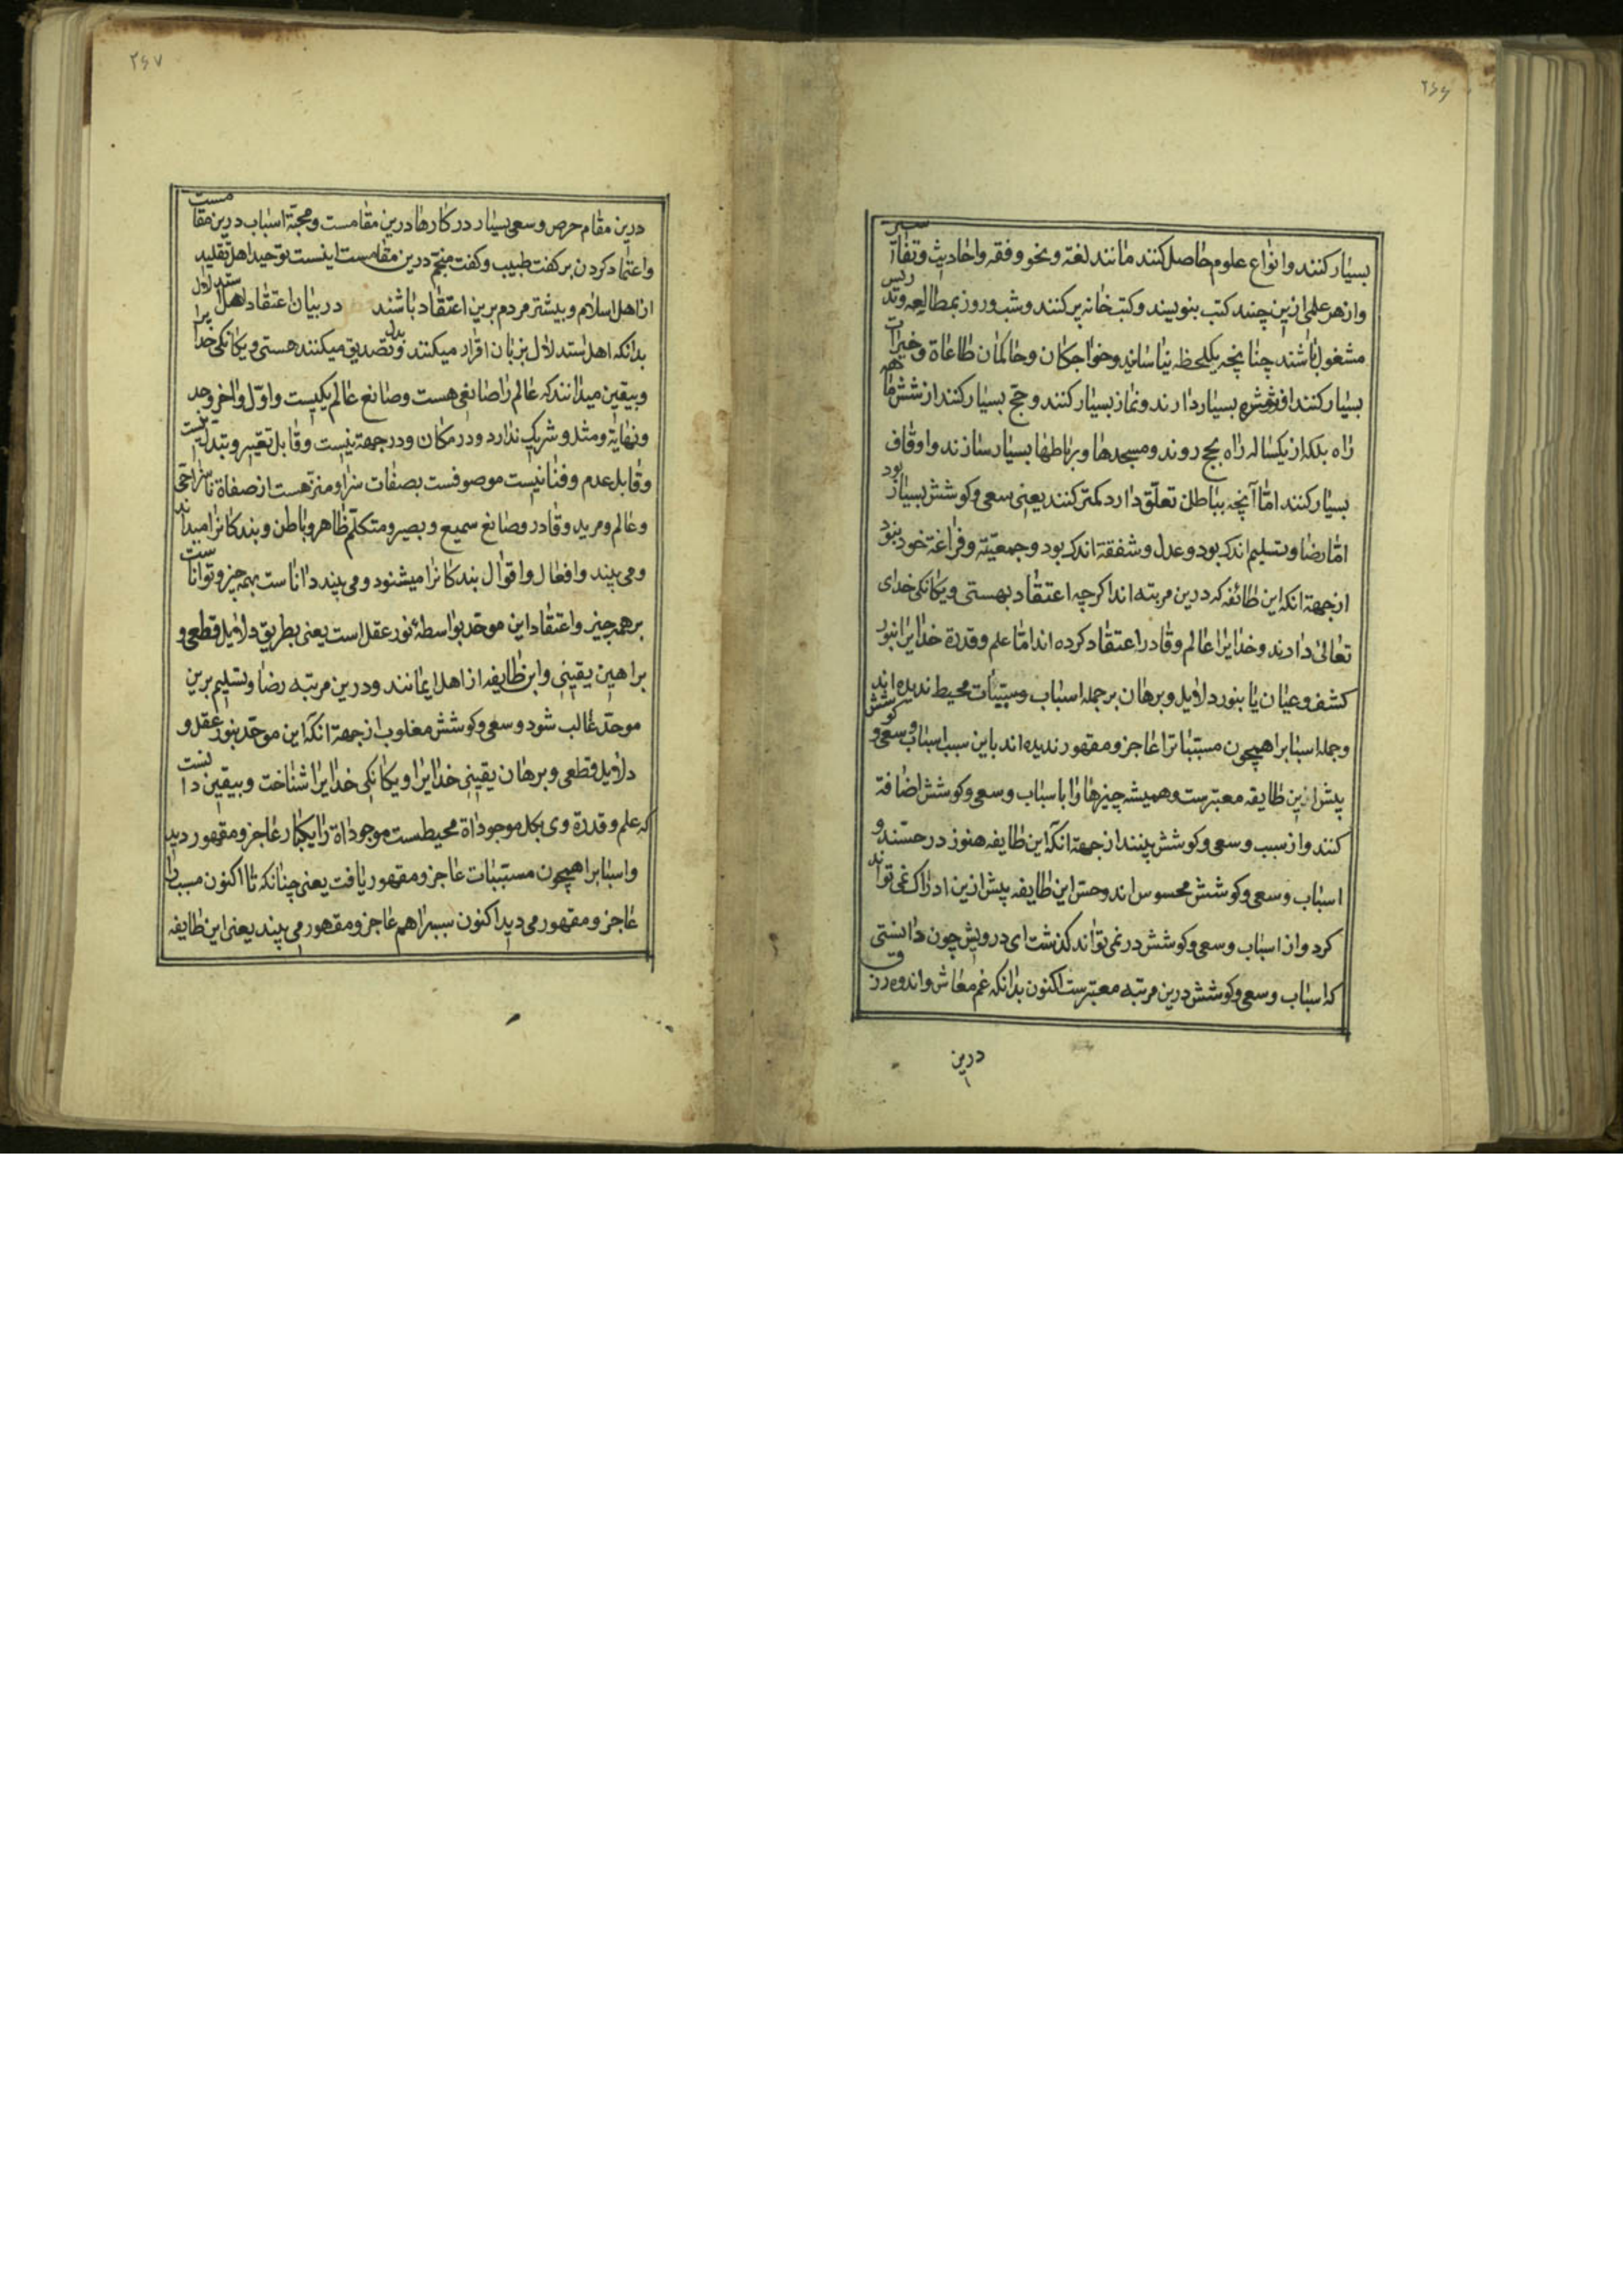 ۲۶۶
بسیار کنند و انواع علوم حاصل کنند مانند لغة و نحو و فقه و احادیث و تفاسیر
و از هر علمی ازین چند کتب بنویسند و کتب خانه پر کنند و شب و روز بمطالعه و تدریس
مشغول باشند چنانچه یکلحظه نیاسایند و خواجکان و حاکمان طاعاة و خیرات
بسیار کنند بسیار دارند و نماز بسیار کنند و حج بسیار کنند از شش ماهه
راه بلکه از یکساله راه بحج روند و مسجدها و رباطها بسیار سازند و اوقاف
بسیار کنند امّا آنچه بباطن تعلّق دارد کمتر کنند یعنی سعی و کوشش بسیار بود
امّا رضا و تسلیم اندک بود و عدل و شفقة اندک بود و جمعیّة و فراغة خود نبود
ازجهة انکه این طائفه که درین مرتبه اند اکرچه اعتقاد بهستی و یکانکی خدای
تعالی دارند و خدایرا عالم و قادر اعتقاد کرده اند امّا علم و قدرة خدایرا بنور
کشف و عیان یا بنور دلایل و برهان بر جمله اسباب و مسبّبات محیط ندیده اند
و جمله اسبابرا همچون مسبّباترا عاجز و مقهور ندیده اند باین سبب اسباب و سعی و کوشش
پیش ازین طایفه معتبرست و همیشه چیزها را باسباب و سعی و کوشش اضافة
کنند و از سبب و سعی و کوشش بینند ازجهة انکه این طایفه هنوز در حسّند و
اسباب و سعی و کوشش محسوس اند و حسّ این طایفه پیش ازین ادراک نمی تواند
کرد و از اسباب و سعی و کوشش در نمی تواند کذشت ای درویش چون دانستی
که اسباب و سعی و کوشش درین مرتبه معتبرست اکنون بدانکه غم معاش و اندوه رزق
درین
۲۶۷
درین مقام حرص و سعی بسیار در کارها درین مقامست و محبّة اسباب درین مقامست
و اعتماد کردن بر کفت طبیب و کفت منجّم درین مقامست اینست توحید اهل تقلید
از اهل اسلام و بیشتر مردم برین اعتقاد باشند در بیان اعتقاد اهل ستدلال
بدانکه اهل ستدلال بزبان اقرار میکنند و بدل تصدیق میکنند هستی و یکانکی خدایرا
و بیقین میدانند که عالم را صانعی هست و صانع عالم یکیست و اوّل و اخر و حد
و نهایة و مثل و شریک ندارد و در مکان و در جهة نیست و قابل تغییر و تبدیل نیست
و قابل عدم و فنا نیست موصوفست بصفات سزا و منزّهست از صفاة ناسزا حی
و عالم و مرید و قادر و صانع سمیع و بصیر و متکلّم ظاهر و باطن و بندکانرا میداند
و می بیند و افعال و اقوال بندکانرا میشنود و می بیند داناست بهمه چیز و تواناست
بر همه چیز و اعتقاد این موحّد بواسطهٔ نور عقل است یعنی بطریق دلایل قطعی و
براهین یقینی و این طایفه از اهل ایمانند و درین مرتبه رضا و تسلیم برین
موحّد غالب شود و سعی و کوشش مغلوب ازجهة انکه این موحّد بنور عقل و
دلایل قطعی و برهان یقینی خدایرا و یکانکی خدایرا شناخت و بیقین دانست
که علم و قدرة وی بکل موجوداة محیطست موجوداة را یکبار عاجز و مقهور دید
و اسبابرا همچون مسبّبات عاجز و مقهور یافت یعنی چنانکه تا اکنون مسبب را
عاجز و مقهور می دید اکنون سببرا هم عاجز و مقهور می بیند یعنی این طایفه